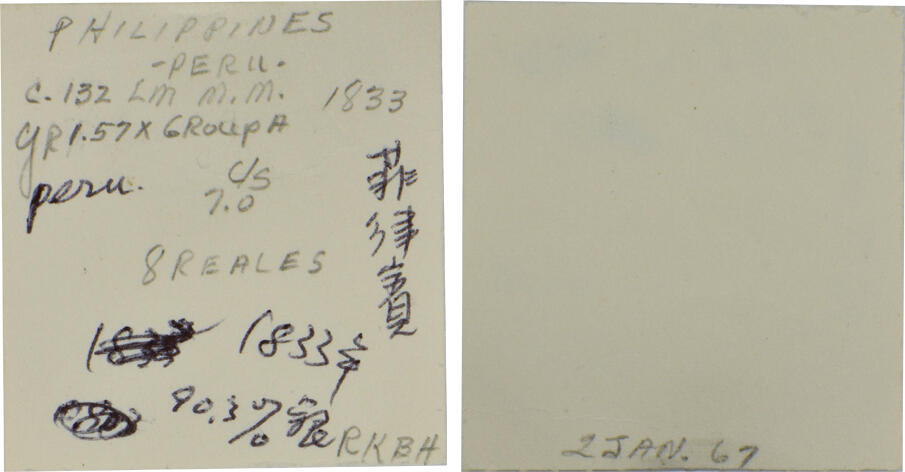 PHILIPPINES
-PERU-
C.132 LM M.M. 1833
GR 1.57X GROUP A
peru. C/S
7.0
菲律賓
8 REALES
1833年
90.3% 銀
RKBH
2 JAN. 67